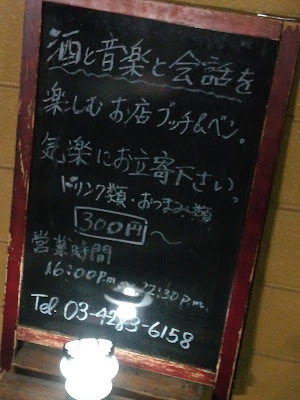 酒と音楽と会話を
楽しむお店ブッチ&ベン。
気楽にお立寄下さい。
ドリンク類・おつまみ類
300円〜
営業時間
16:00p.m.〜22:30p.m.
Tel. 03-4283-6158